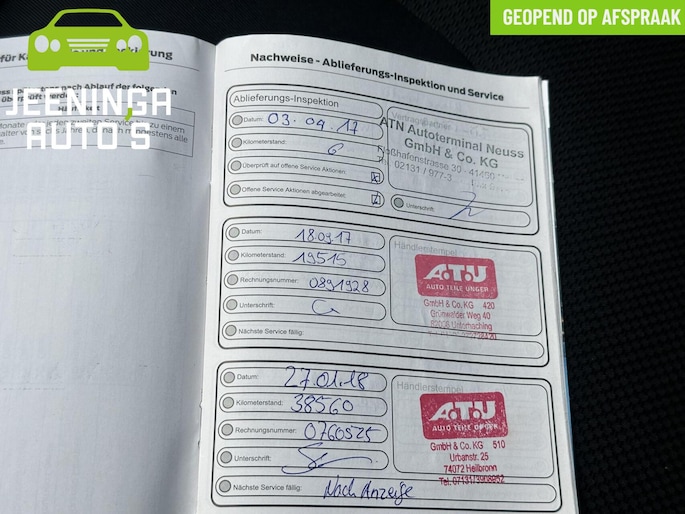 GEOPEND OP AFSPRAAK
JEENINGA
AUTO'S
Nachweise - Ablieferungs-Inspektion und Service
Ablieferungs-Inspektion
Datum: 03.04.17
Kilometerstand: 6
Überprüft auf offene Service Aktionen:
Offene Service Aktionen abgearbeitet:
ATN Autoterminal Neuss
GmbH & Co. KG
Floßhafenstrasse 30 - 41460
Tel. 02131 / 977-3
Unterschrift:
Datum: 18.09.17
Kilometerstand: 19515
Rechnungsnummer: 0891928
Unterschrift:
Nächste Service fällig:
Händlerstempel
A.T.U
AUTO TEILE UNGER
GmbH & Co. KG 420
Grünwalder Weg 40
82008 Unterhaching
Datum: 27.01.18
Kilometerstand: 38560
Rechnungsnummer: 0760525
Unterschrift:
Nächste Service fällig: Nach Anzeige
Händlerstempel
A.T.U
AUTO TEILE UNGER
GmbH & Co. KG 510
Urbanstr. 25
74072 Heilbronn
Tel. 07131/3908952